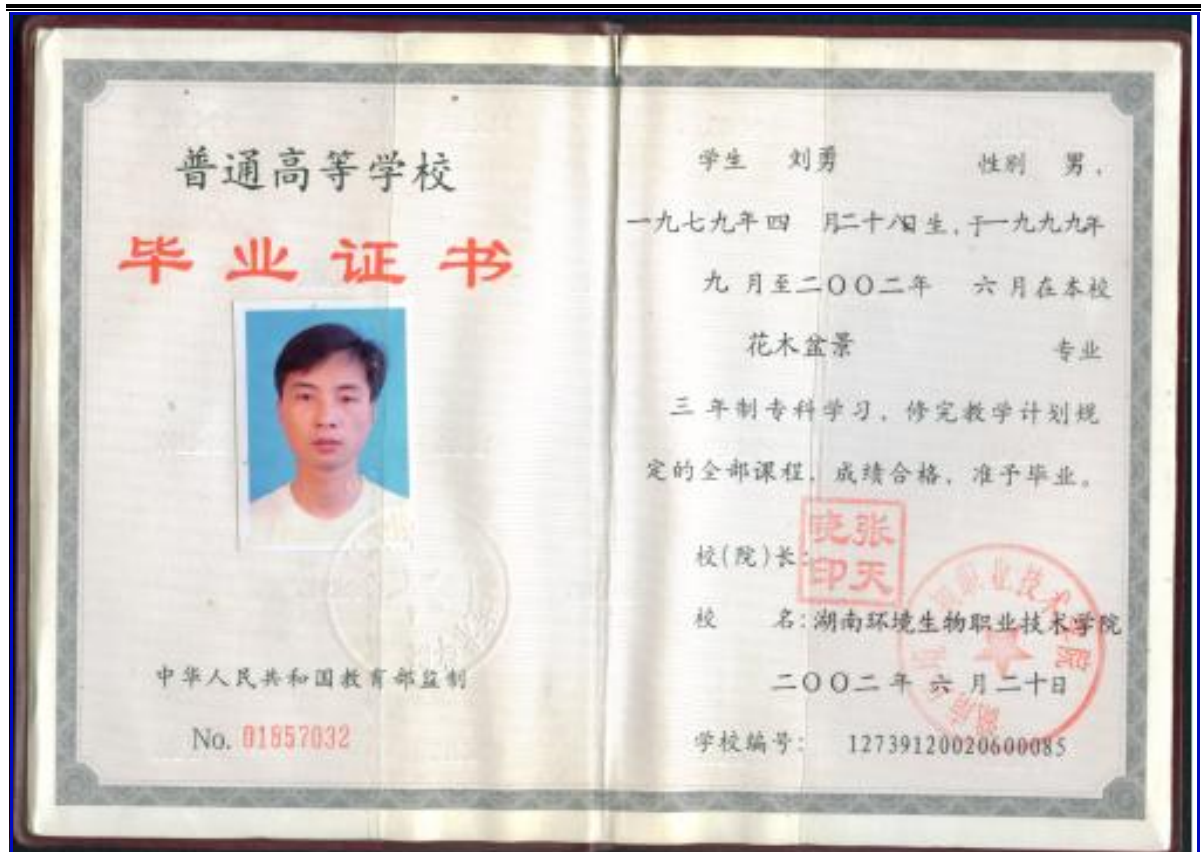 普通高等学校
毕业证书
中华人民共和国教育部监制
No. 01857032
学生 刘勇 性别 男,
一九七九年四 月二十八日生,于一九九九年
九 月至二〇〇二年 六 月在本校
花木盆景 专业
三 年制专科学习,修完教学计划规
定的全部课程,成绩合格,准予毕业。
校(院)长:
张天晓印
校 名:湖南环境生物职业技术学院
二〇〇二年 六 月二十日
学校编号: 12739120020600085